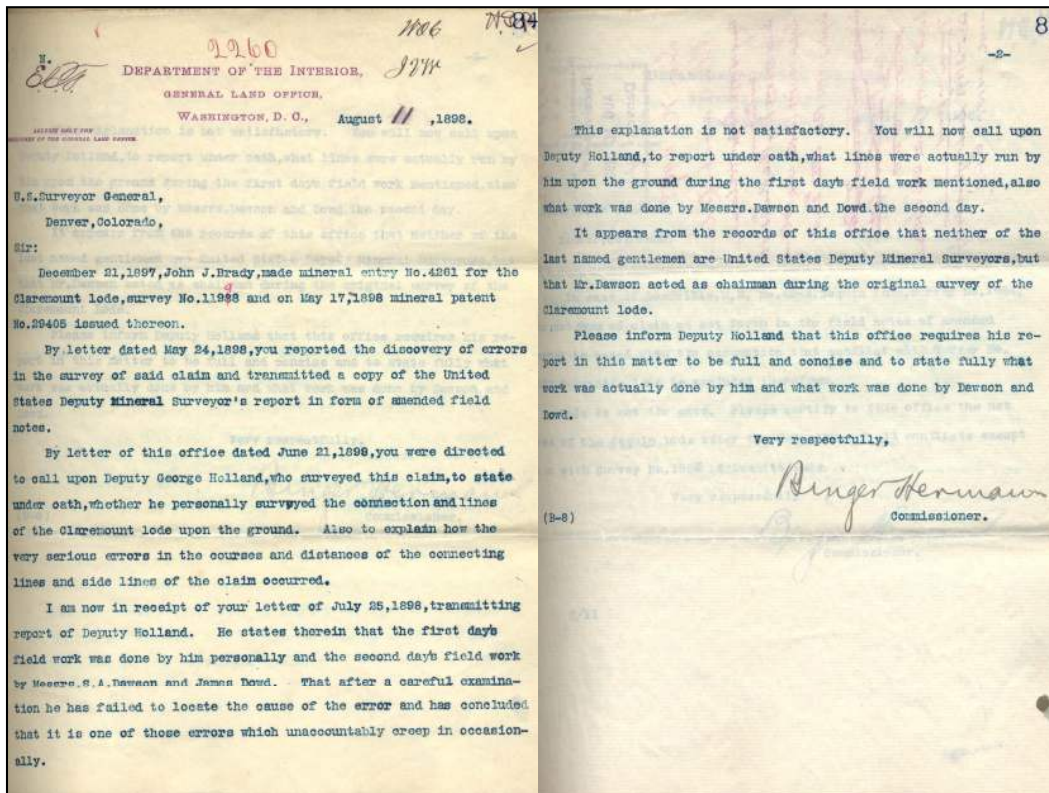 2260
N.
DEPARTMENT OF THE INTERIOR,
GENERAL LAND OFFICE,
WASHINGTON, D. C., August 11, 1898.
U.S.Surveyor General,
Denver,Colorado,
Sir:
December 21,1897,John J.Brady,made mineral entry No.4261 for the
Claremount lode,survey No.11998 and on May 17,1898 mineral patent
No.29405 issued thereon.
By letter dated May 24,1898,you reported the discovery of errors
in the survey of said claim and transmitted a copy of the United
States Deputy Mineral Surveyor's report in form of amended field
notes.
By letter of this office dated June 21,1898,you were directed
to call upon Deputy George Holland,who surveyed this claim,to state
under oath,whether he personally surveyed the connection and lines
of the Claremount lode upon the ground. Also to explain how the
very serious errors in the courses and distances of the connecting
lines and side lines of the claim occurred.
I am now in receipt of your letter of July 25,1898,transmitting
report of Deputy Holland. He states therein that the first day's
field work was done by him personally and the second day's field work
by Messrs.S.A.Dawson and James Dowd. That after a careful examina-
tion he has failed to locate the cause of the error and has concluded
that it is one of those errors which unaccountably creep in occasion-
ally.
8
-2-
This explanation is not satisfactory. You will now call upon
Deputy Holland,to report under oath,what lines were actually run by
him upon the ground during the first day's field work mentioned,also
what work was done by Messrs.Dawson and Dowd the second day.
It appears from the records of this office that neither of the
last named gentlemen are United States Deputy Mineral Surveyors,but
that Mr.Dawson acted as chainman during the original survey of the
Claremount lode.
Please inform Deputy Holland that this office requires his re-
port in this matter to be full and concise and to state fully what
work was actually done by him and what work was done by Dawson and
Dowd.
Very respectfully,
Binger Hermann
(B-8) Commissioner.